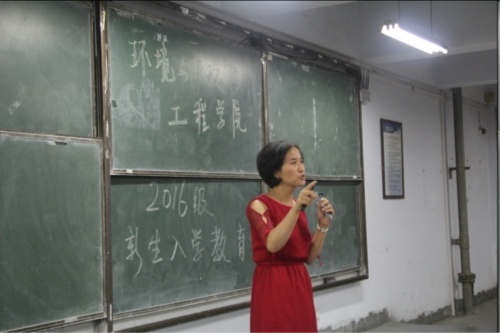 环境与
工程学院
2016级
新生入学教育